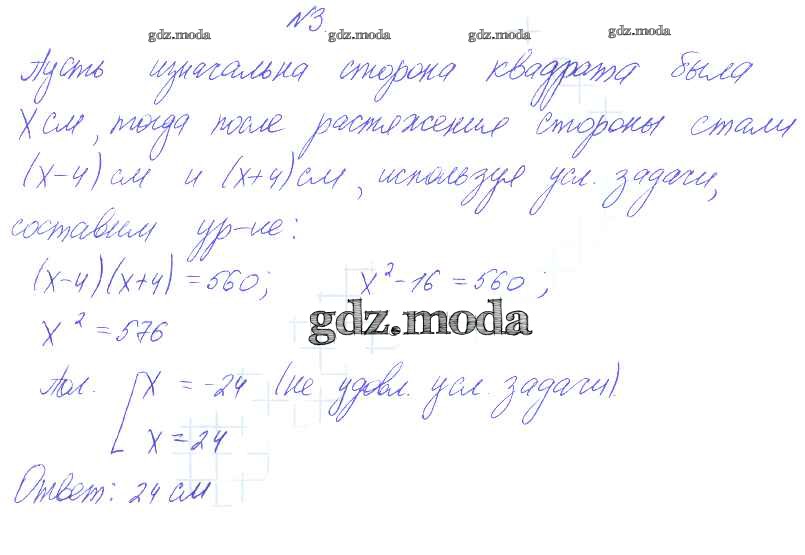 №3.
gdz.moda gdz.moda gdz.moda gdz.moda
Пусть изначальна сторона квадрата была
X см, тогда после растяжения стороны стали
(x-4) см и (x+4) см, используя усл. задачи,
составим ур-ие:
(x-4)(x+4) = 560; x² - 16 = 560;
x² = 576
gdz.moda
Пол. [ x = -24 (не удовл. усл. задачи).
x = 24
Ответ: 24 см